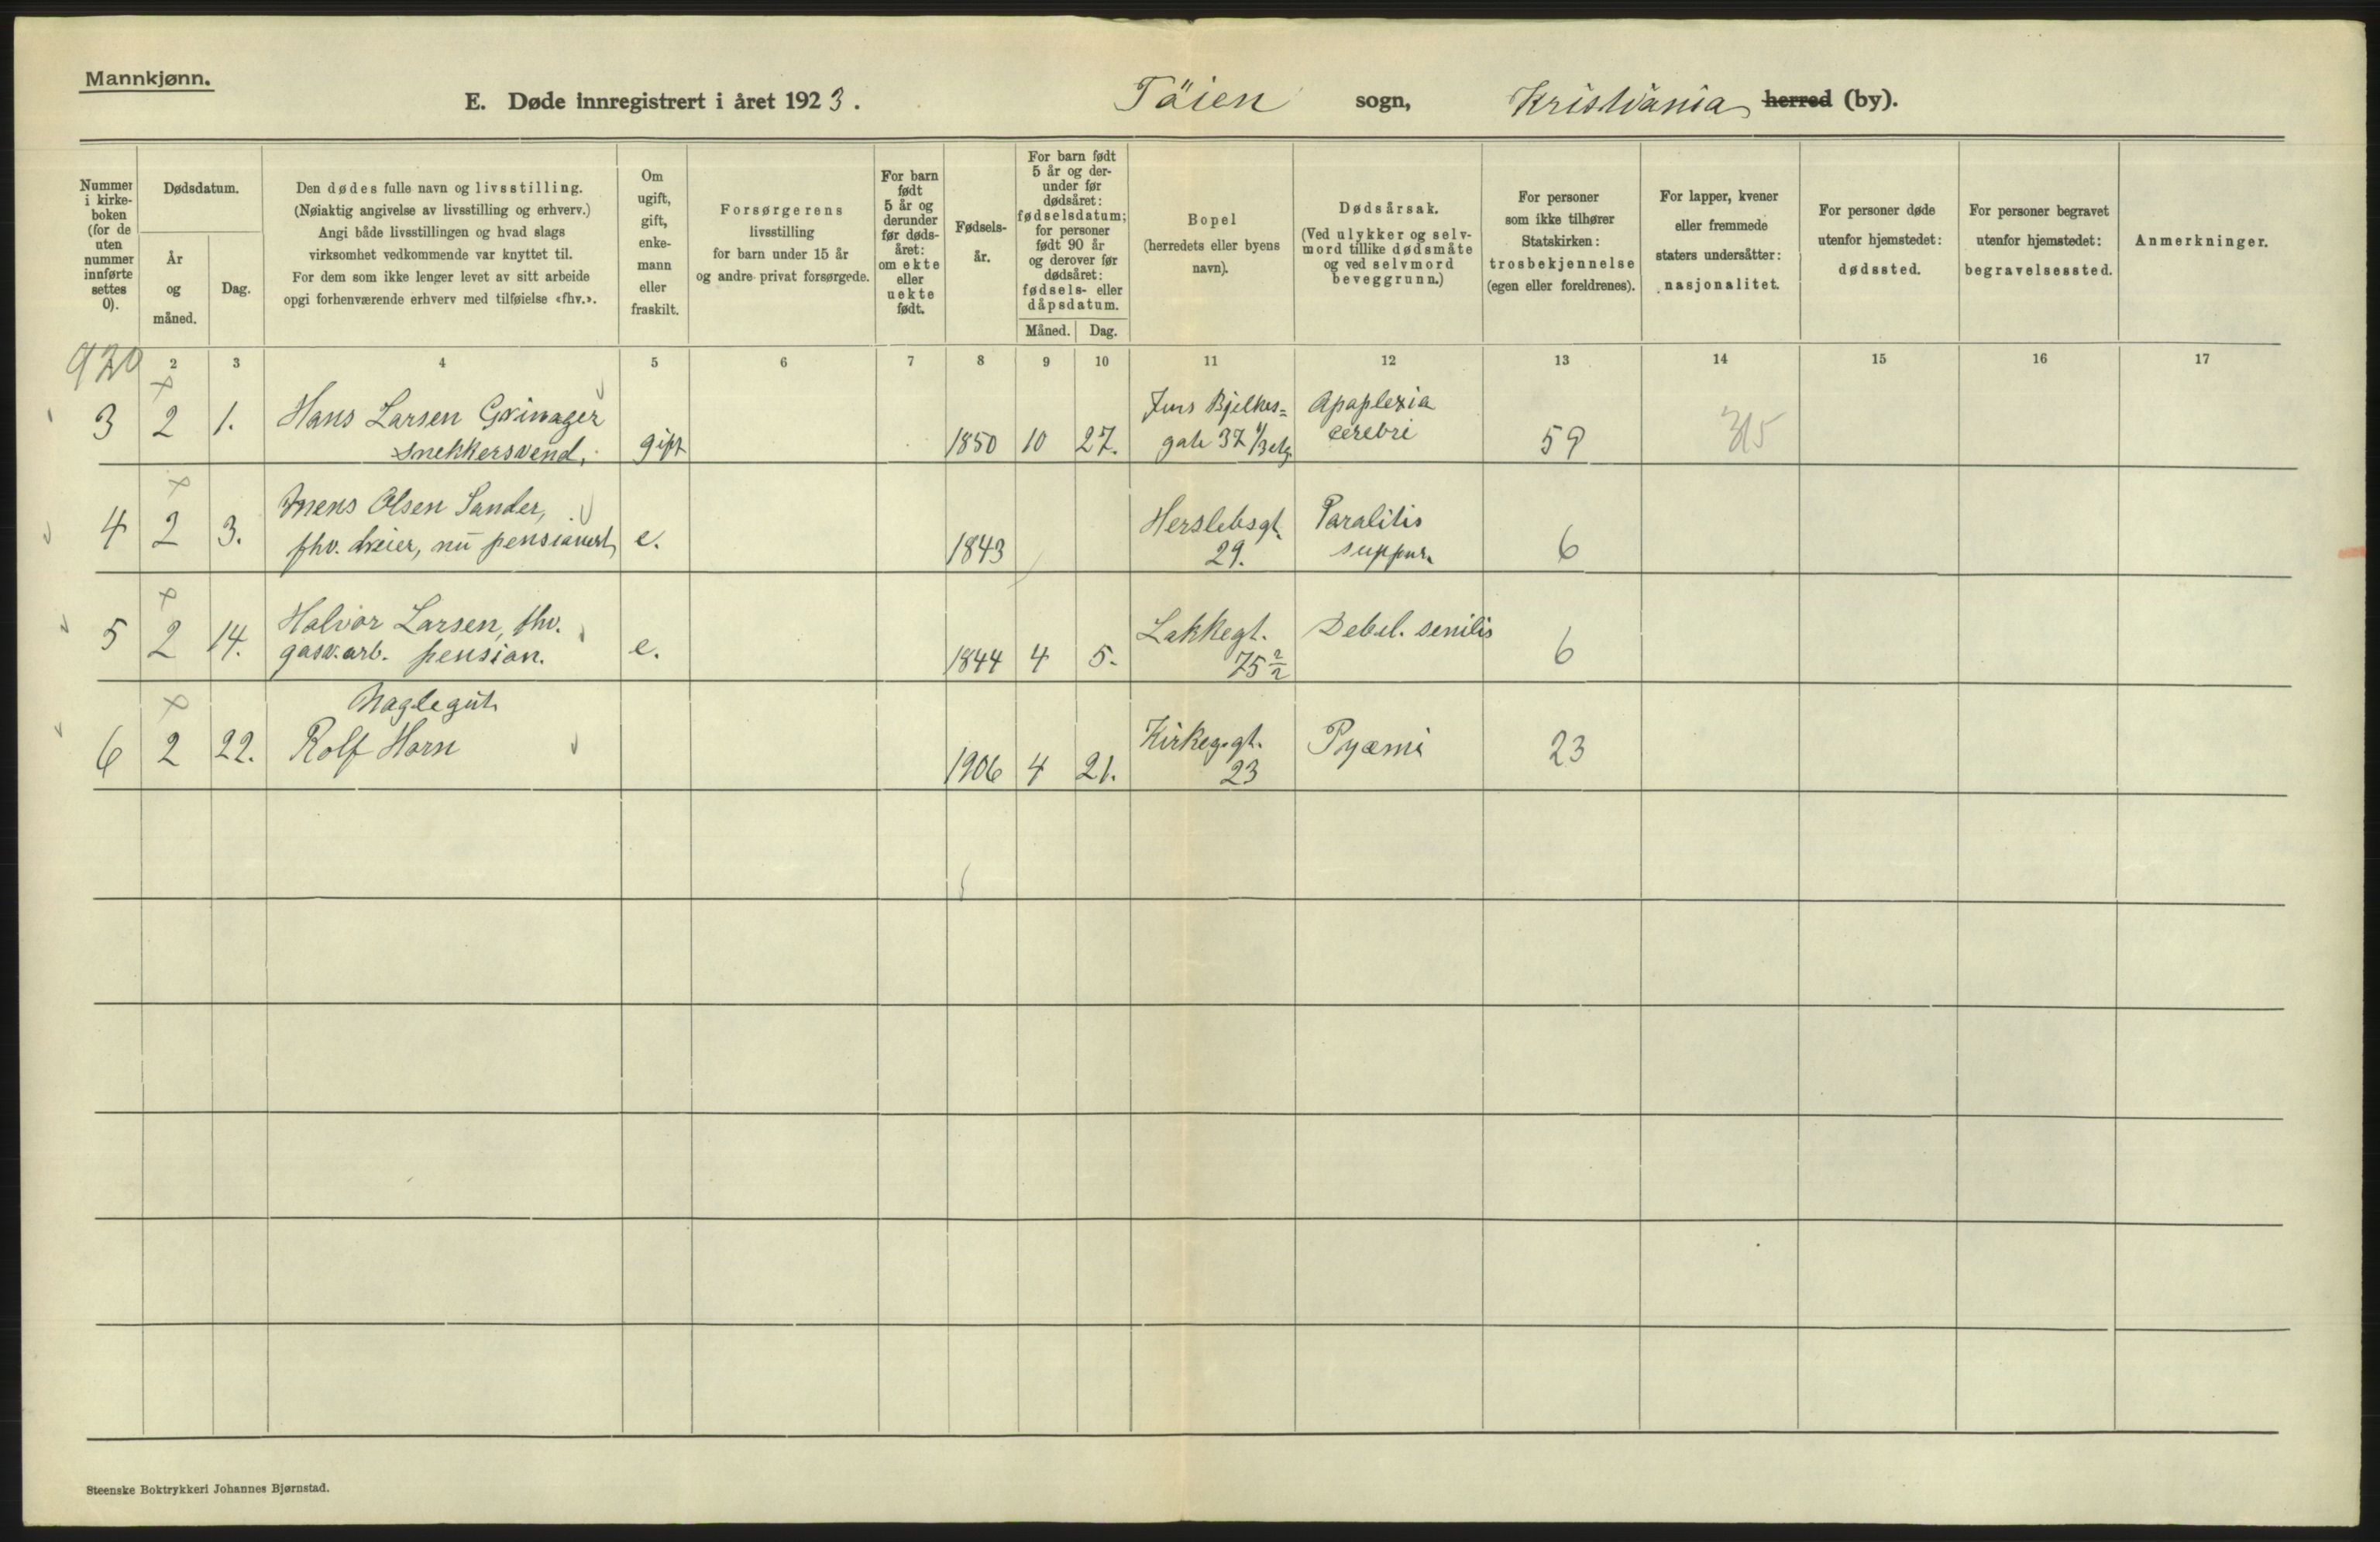 Mannkjønn.
E. Døde innregistrert i året 1923. Töien sogn, Kristiania herred (by).
Nummer i kirkeboken (for de uten nummer innførte settes 0).
Dødsdatum.
År og måned.
Dag.
Den dødes fulle navn og livsstilling.
(Nøiaktig angivelse av livsstilling og erhverv.)
Angi både livsstillingen og hvad slags
virksomhet vedkommende var knyttet til.
For dem som ikke lenger levet av sitt arbeide
opgi forhenværende erhverv med tilføielse «fhv.».
Om ugift, gift, enkemann eller fraskilt.
Forsørgerens
livsstilling
for barn under 15 år
og andre privat forsørgede.
For barn født 5 år og derunder før dødsåret: om ekte eller uekte født.
Fødselsår.
For barn født 5 år og derunder før dødsåret: fødselsdatum; for personer født 90 år og derover før dødsåret: fødsels- eller dåpsdatum.
Måned. Dag.
Bopel
(herredets eller byens
navn).
Dødsårsak.
(Ved ulykker og selv-
mord tillike dødsmåte
og ved selvmord
beveggrunn.)
For personer
som ikke tilhører
Statskirken:
trosbekjennelse
(egen eller foreldrenes).
For lapper, kvener
eller fremmede
staters undersåtter:
nasjonalitet.
For personer døde
utenfor hjemstedet:
dødssted.
For personer begravet
utenfor hjemstedet:
begravelsessted.
Anmerkninger.
2 3 4 5 6 7 8 9 10 11 12 13 14 15 16 17
3 2 1. Hans Larsen
snekkersvend. gift 1850 10 27. Jens Bjelkes=
gate 37 Apoplexia
cerebri 59 315
4 2 3. Olsen Sander,
fhv. dreier, nu pensionert e. 1843 Herslebsgt.
29. suppur. 6
5 2 14. Halvor Larsen, fhv.
gasv.arb. pension. e. 1844 4 5. Lakkegt.
75 2/2 Debil. senilis 6
6 2 22. Naglegut
Rolf Horn 1906 4 21. Kirkeg.gt.
23 Pyæmi 23
Steenske Boktrykkeri Johannes Bjørnstad.